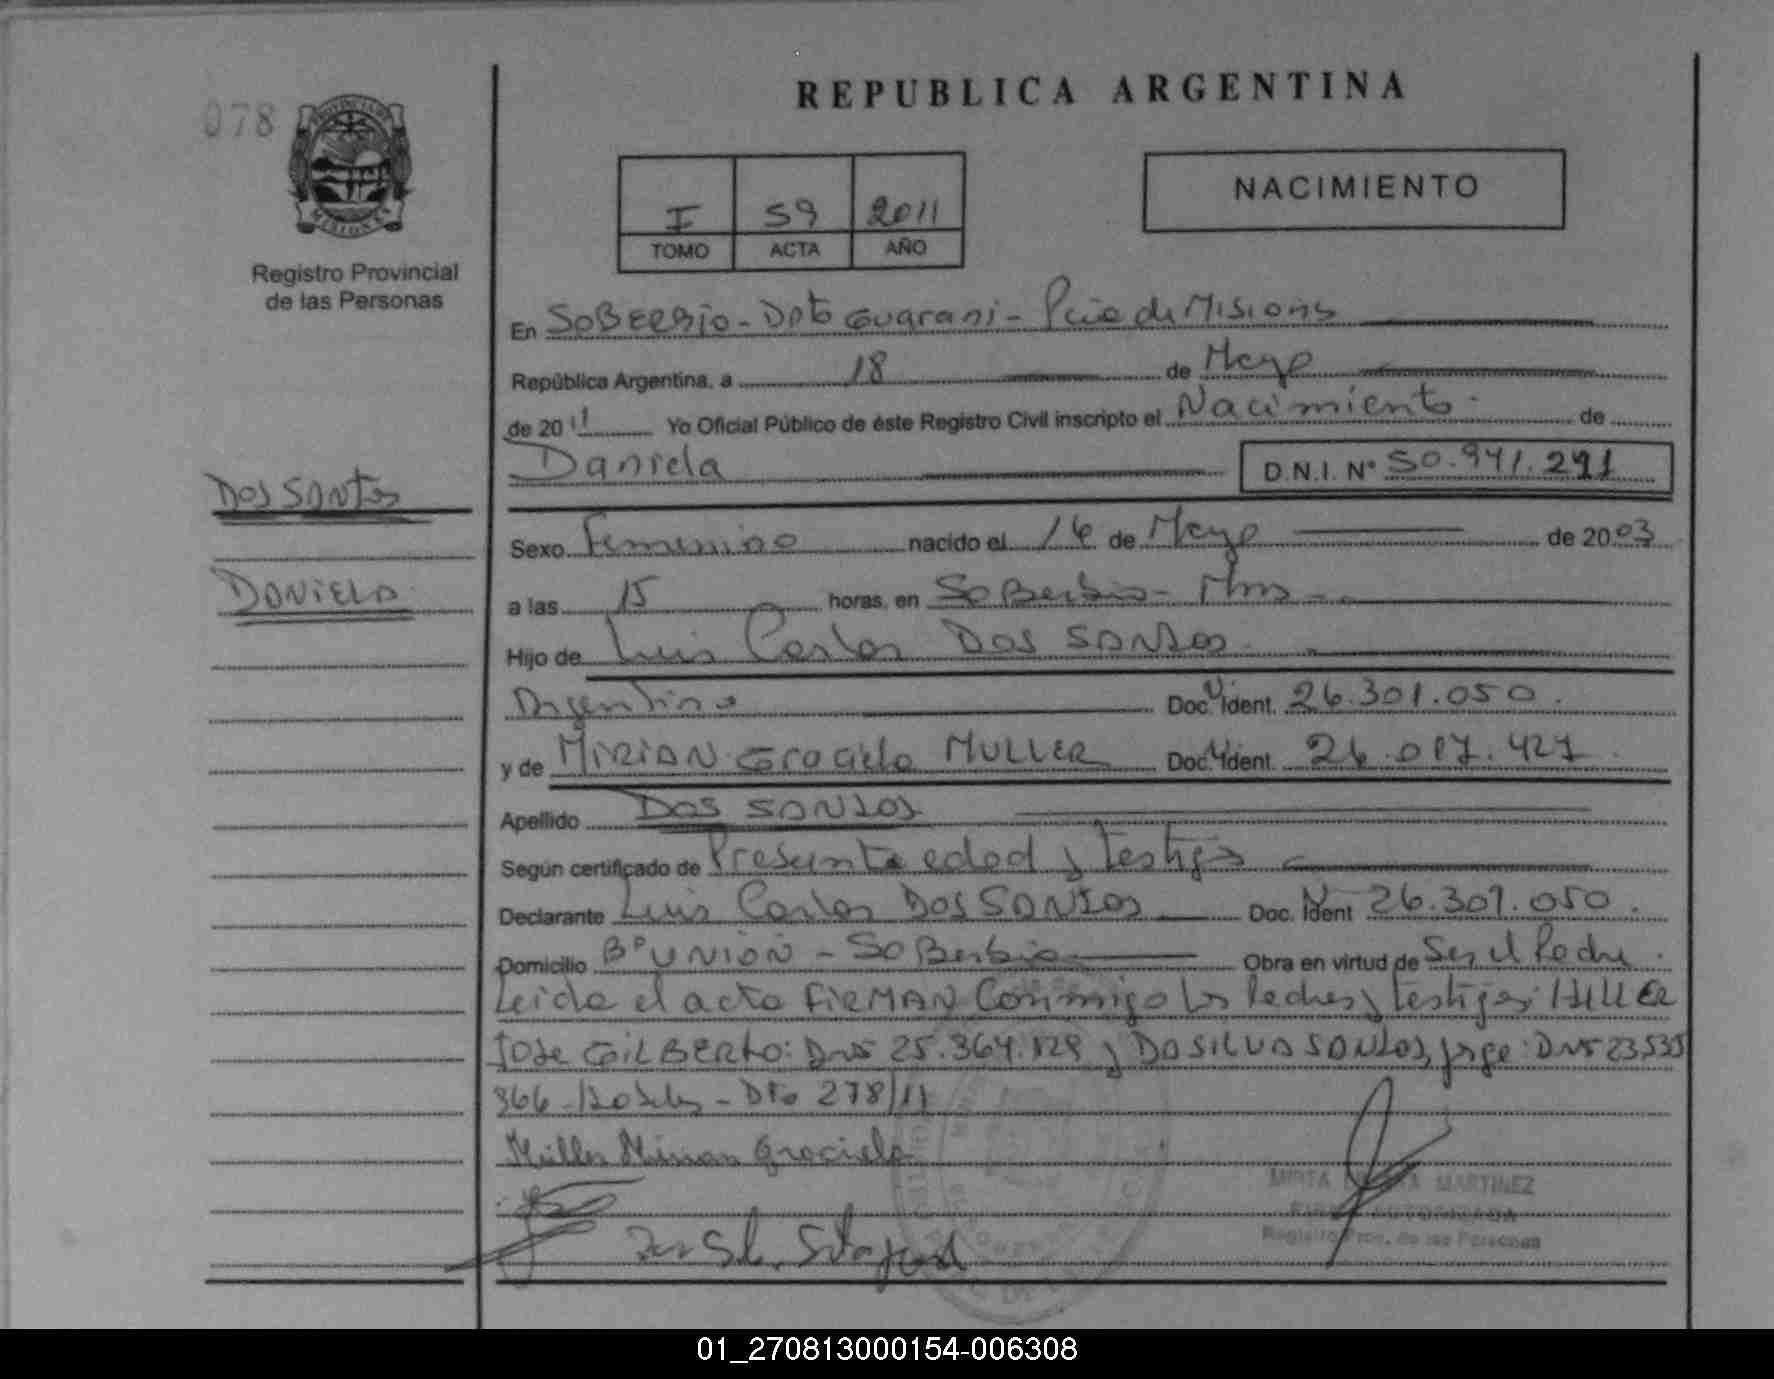 REPUBLICA ARGENTINA
078
PROVINCIA DE
MISIONES
Registro Provincial
de las Personas
I 59 2011
TOMO ACTA AÑO
NACIMIENTO
En SOBERBIO - Dpto Guarani - Pcia de Misiones
República Argentina, a 18 de Mayo
de 2011 Yo Oficial Público de éste Registro Civil inscripto el Nacimiento de
Daniela D.N.I. Nº 50.941.291
DOS SANTOS
DANIELA
Sexo Femenino nacido el 14 de Mayo de 2003
a las 15 horas, en Soberbio - Mnes
Hijo de Luis Carlos DOS SANTOS
Argentino Doc. Ident. 26.301.050.
y de MIRIAN Graciela MULLER Doc. Ident. 26.017.427
Apellido DOS SANTOS
Según certificado de Presunta edad y testigos
Declarante Luis Carlos DOS SANTOS Doc. Ident 26.301.050.
Domicilio Bº UNION - Soberbio Obra en virtud de Ser el Padre.
Leida el acta FIRMAN Conmigo los Padres y testigos: HILLER
JOSE GILBERTO: DNI 25.364.129 y DA SILVA SANTOS, Jorge: DNI 23535
366 - - Dto 278/11
Müller Mirian Graciela
MIRTA MARTINEZ
FIRMA AUTORIZADA
Registro Prov. de las Personas
01_270813000154-006308